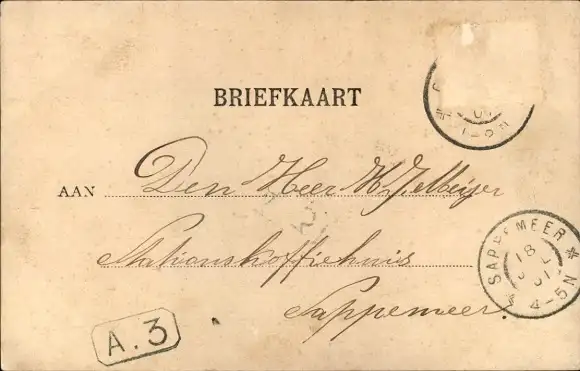 BRIEFKAART
AAN Den Heer
Stationskoffiehuis
Sappemeer.
SAPPEMEER
18
01
4-5N
A.3